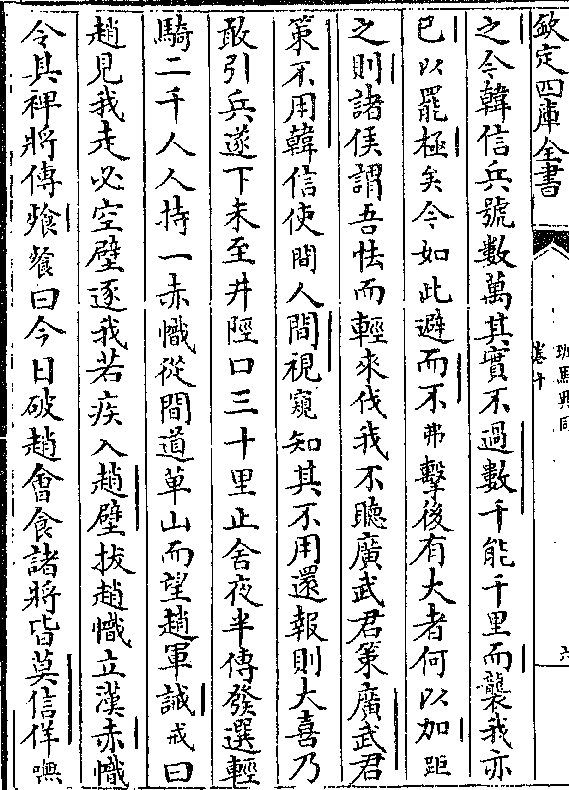 欽定四庫全書
班馬異同
卷十
六
之今韓信兵號數萬其實不過數千能千里而襲我亦
已以罷極矣今如此避而不弗擊後有大者何以加距
之則諸侯謂吾怯而輕來伐我不聽廣武君策廣武君
策不用韓信使間人間視窺知其不用還報則大喜乃
敢引兵遂下未至井陘口三十里止舍夜半傳發選輕
騎二千人人持一赤幟從間道萆山而望趙軍誡戒曰
趙見我走必空壁逐我若疾入趙壁拔趙幟立漢赤幟
令其裨將傳飱餐曰今日破趙會食諸將皆莫信佯嘸